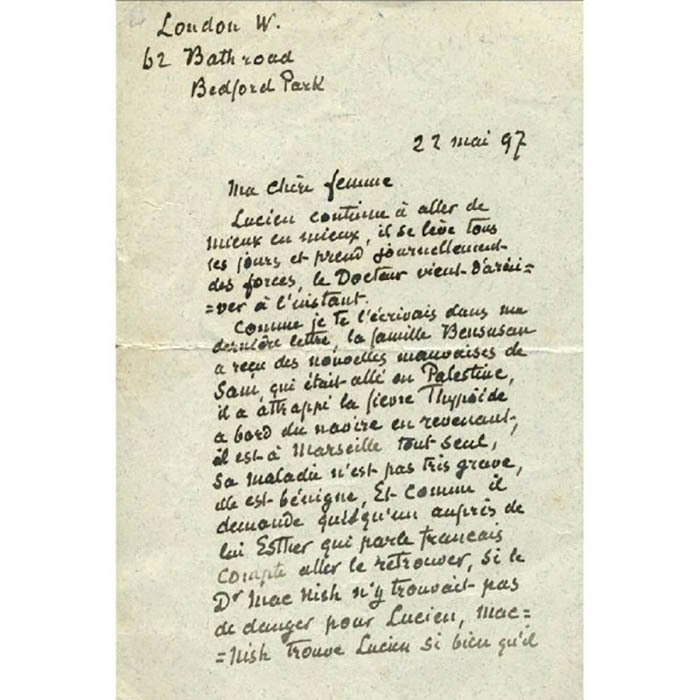 London W.
62 Bath road
Bedford Park
22 mai 97
Ma chère femme
Lucien continue à aller de
mieux en mieux, il se lève tous
les jours et prend journellement
des forces, le Docteur vient d'arri=
=ver à l'instant.
Comme je te l'écrivais dans ma
dernière lettre, la famille Bensusan
a reçu des nouvelles mauvaises de
Sam, qui était allé en Palestine,
il a attrappé la fievre Thypoïde
a bord du navire en revenant,
il est à Marseille tout seul,
sa maladie n'est pas très grave,
elle est bénigne, Et comme il
demande quelqu'un auprès de
lui Esther qui parle francais
compte aller le retrouver, si le
Dr Mac Nish n'y trouvait pas
de danger pour Lucien, Mac=
=Nish trouve Lucien si bien qu'il